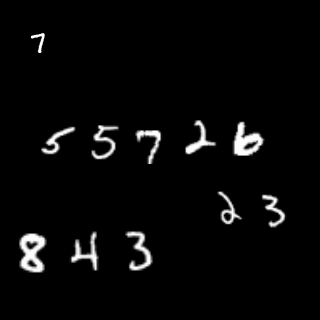 7
55726
23
843